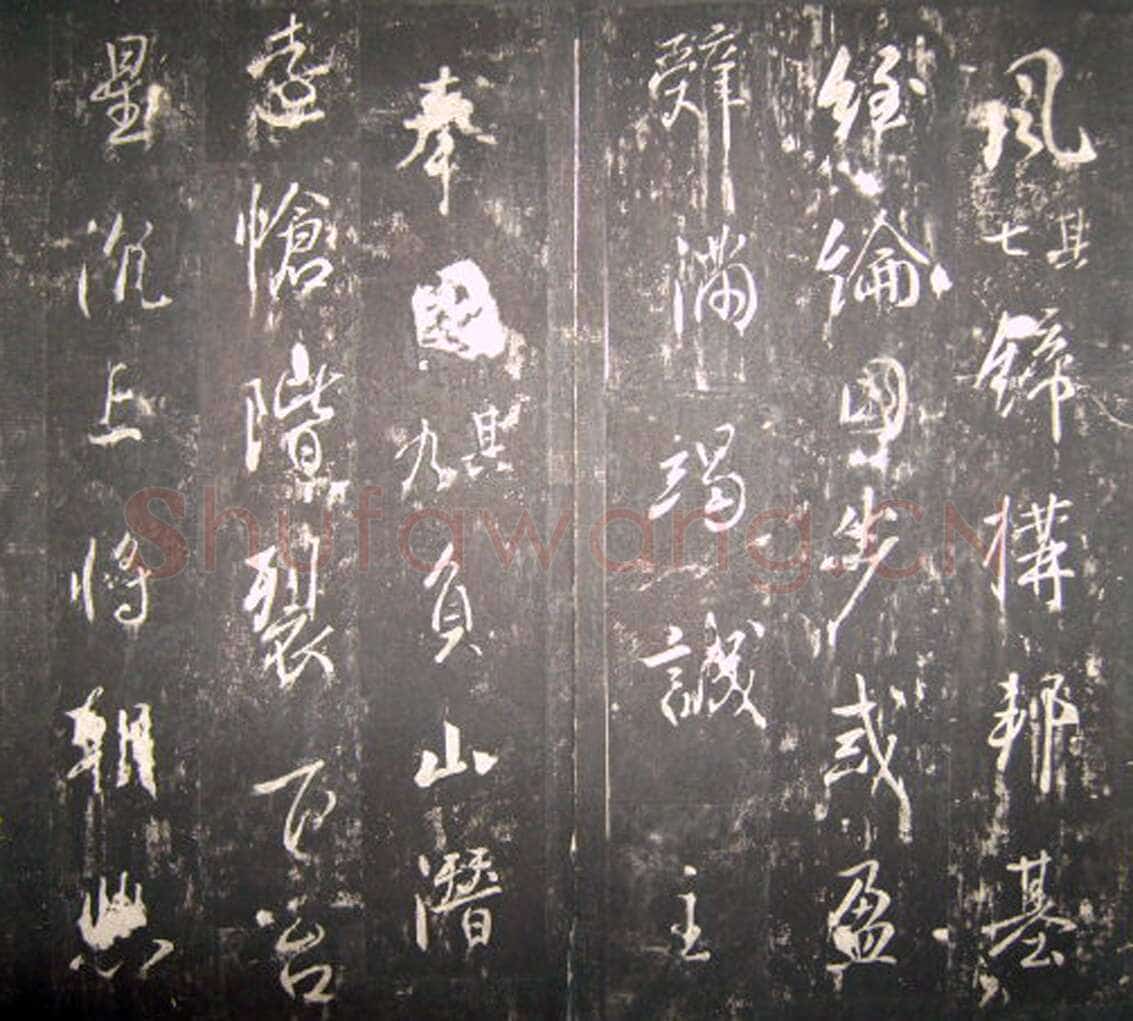 風其七締構邦基
經綸國步戒盈
辭滿竭誠主
奉國其九負山潛
遠愴階裂下台
星沉上將朝
Shufawang.CN